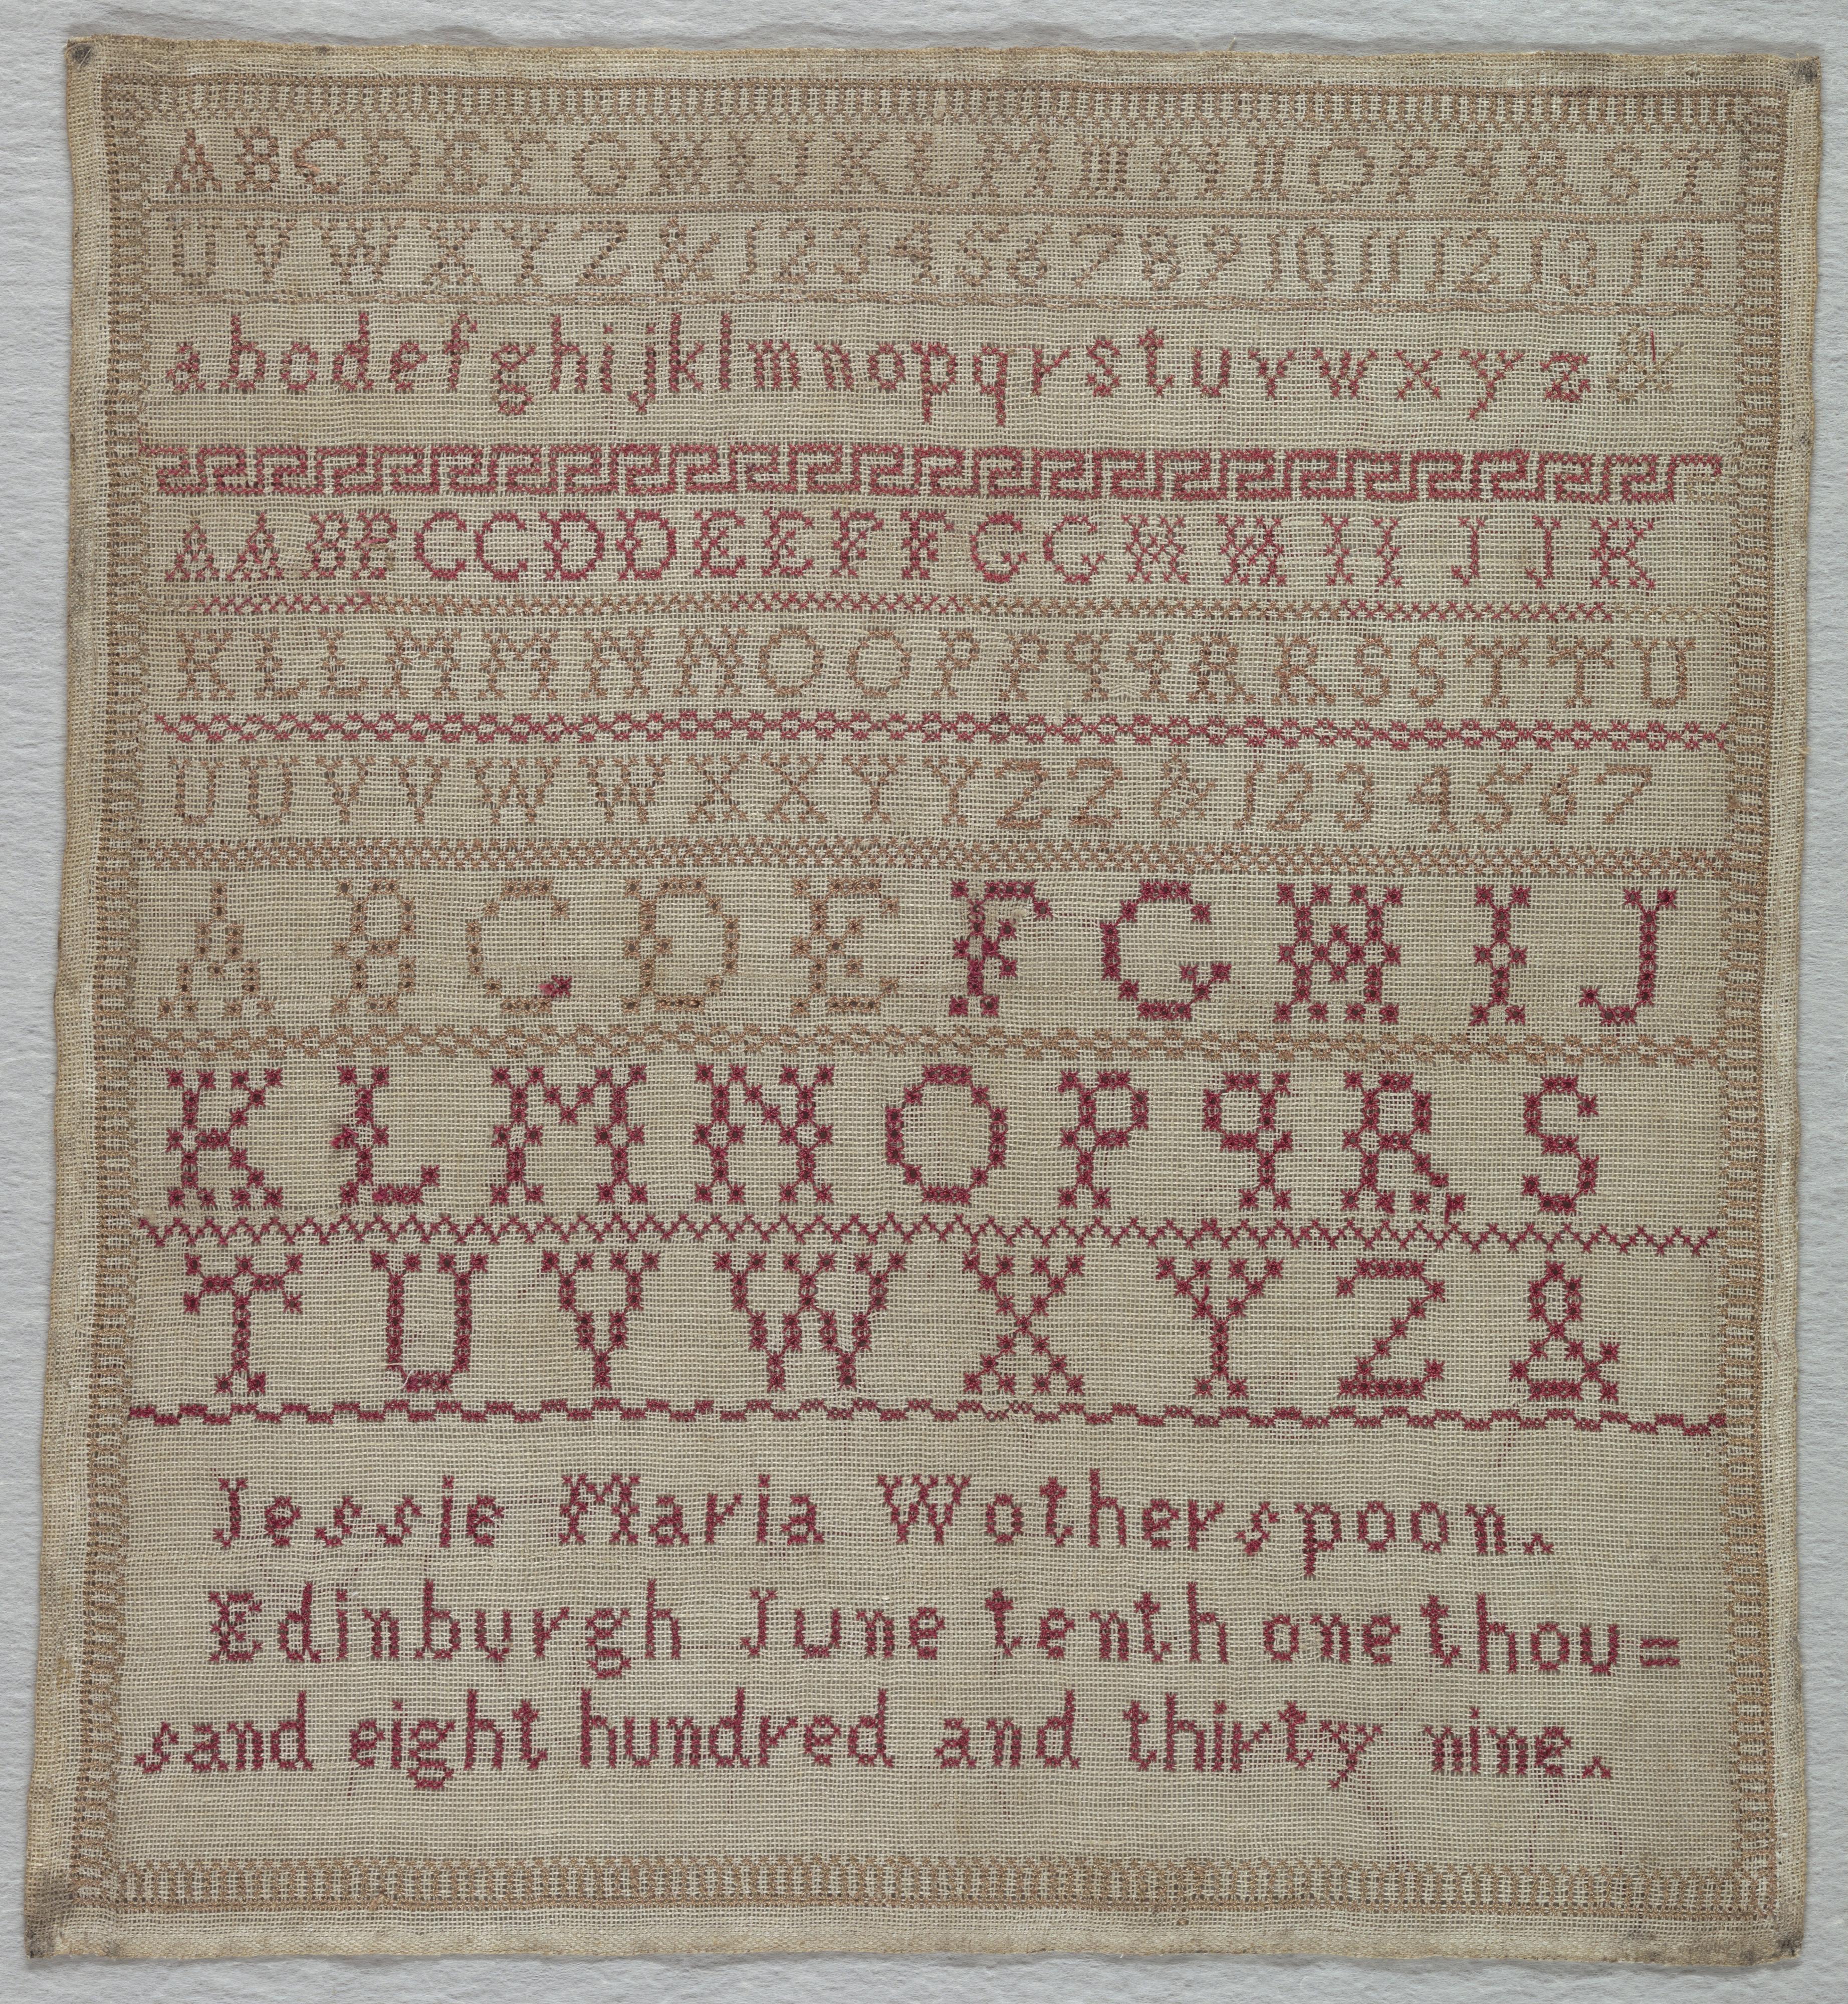 A B C D E F G H I J K L M III N II O P q R S T
U V W X Y Z & 1 2 3 4 5 6 7 8 9 10 11 12 13 14
a b c d e f g h i j k l m n o p q r s t u v w x y z &
A A B B C C D D E E F F G G H H I I J J K
K L L M M N N O O P P q q R R S S T T U
U U V V W W X X Y Y Z Z & 1 2 3 4 5 6 7
A B C D E F G H I J
K L M N O P q R, S
T U V W X Y Z &
Jessie Maria Wotherspoon.
Edinburgh June tenth one thou=
sand eight hundred and thirty nine.